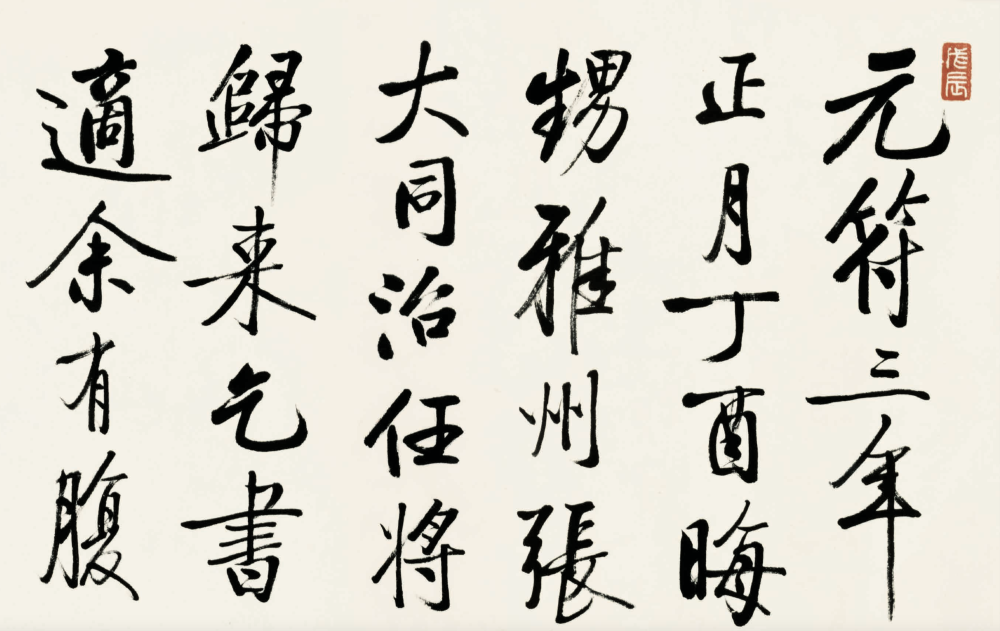 戊辰
元符三年
正月丁酉晦
甥雅州張
大同治任将
歸来乞書
適余有腹